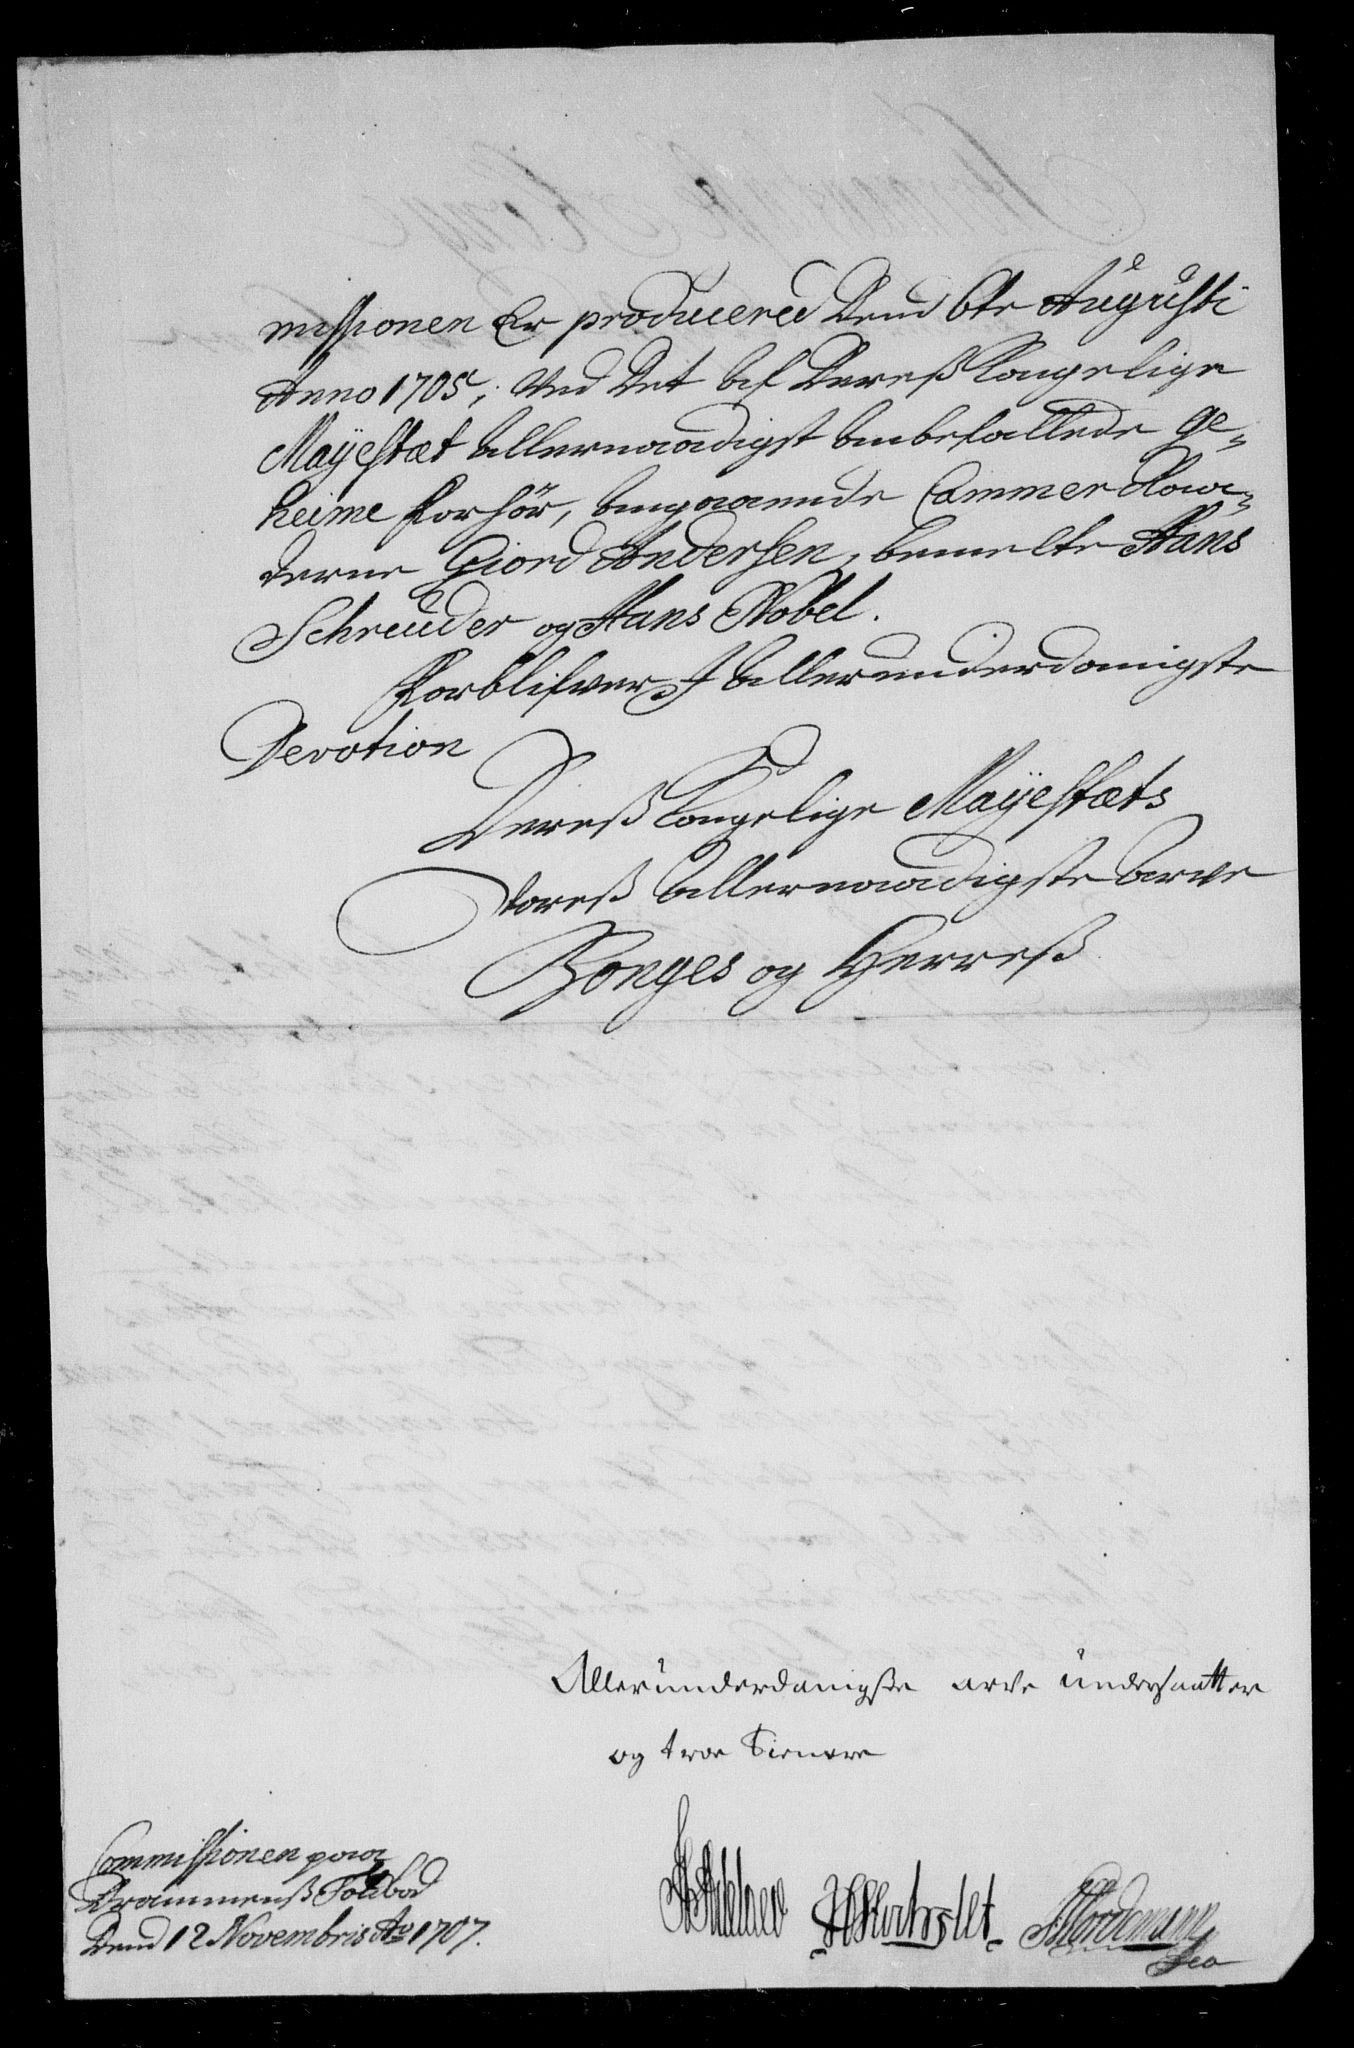 missionen Er producered Dend 6te Augusti
Anno 1705, Ved Det Af Dereß Kongelige
Mayestæt Allernaadigst Anbefallede Ge=
heime Forhör, Angaaende Cammer Raa=
derne Giord Andersen, bemelte Hans
Schreuder og Hans Nobel.
Forblifver I Allerunderdanigste
Devotion
Dereß Kongelige Mayestæts
Voreß Allernaadigste Arve
Konges og Herreß
Allerunderdanigste arve undersaatter
og troe Tienere
Nordemann
Commissionen paa
Drammenß Toldbod
Dend 12 Novembris Ao 1707.